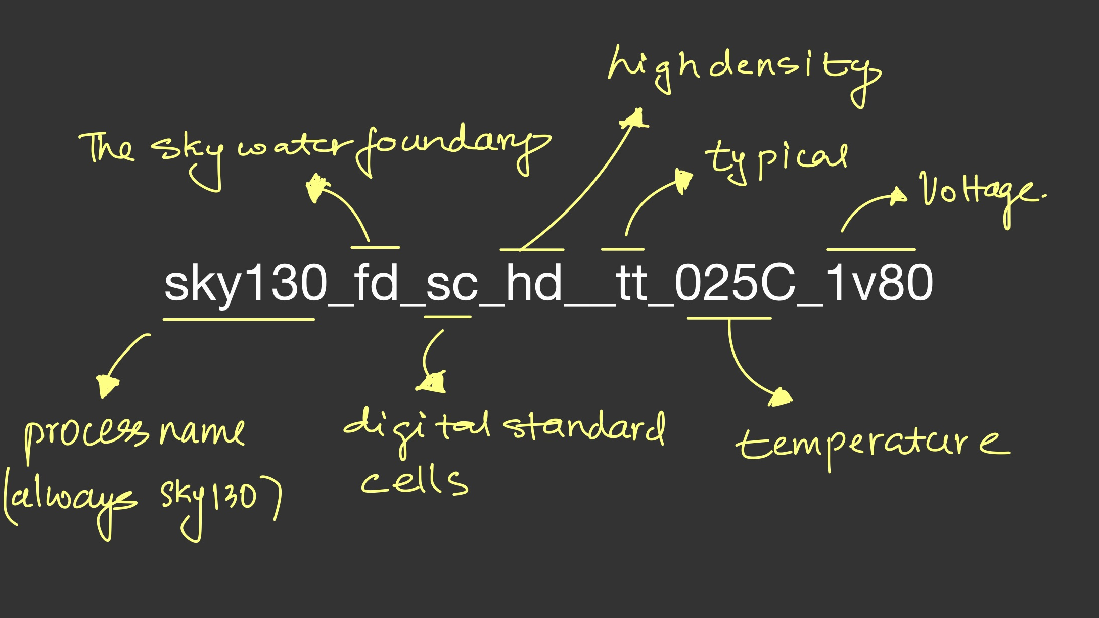 high density
The sky water foundary
typical
Voltage.
sky130_fd_sc_hd__tt_025C_1v80
process name
(always sky130)
digital standard
cells
temperature